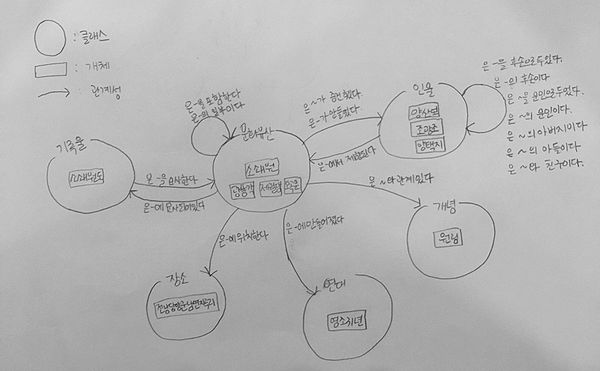 : 클래스
: 개체
: 관계성
기록물
소쇄원도
은 ~을 묘사했다
은 ~에 묘사되어있다
은 ~을 포함한다
은 ~의 일부이다
문화유산
소쇄원
광풍각
제월당
은 ~가 증언했다
은 ~가 만들었다
은 ~에서 제향된다
인물
양산보
조광조
양택지
은 ~을 후손으로 두었다.
은 ~의 후손이다.
은 ~을 문인으로 두었다.
은 ~의 문인이다.
은 ~의 아버지이다
은 ~의 아들이다
은 ~와 친구이다.
은 ~와 관계있다
개념
원림
은 ~에 위치한다
장소
은 ~에 만들어졌다
연대